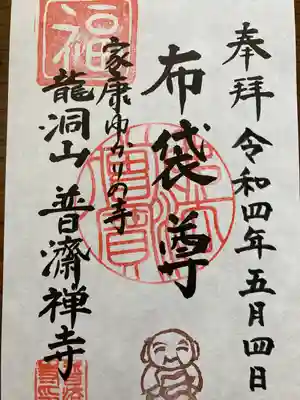 奉拝 令和四年五月四日
布袋尊
家康ゆかりの寺
龍洞山 普濟禅寺
福